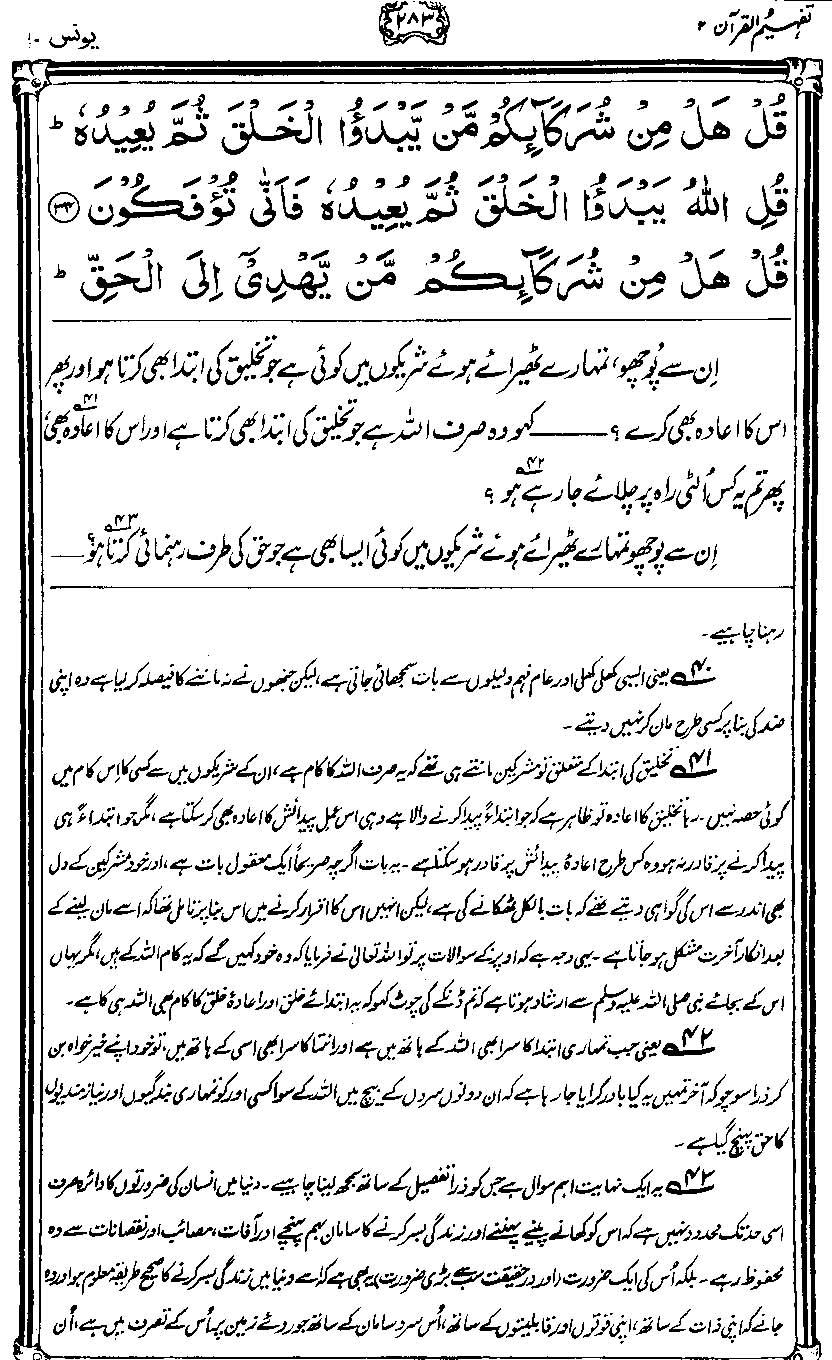 تفہیم القرآن ۲
۲۸۳
یونس ۱۰
قُلْ هَلْ مِنْ شُرَكَآئِكُمْ مَّنْ يَّبْدَؤُا الْخَلْقَ ثُمَّ يُعِيْدُهٗ ؕ
قُلِ اللّٰهُ يَبْدَؤُا الْخَلْقَ ثُمَّ يُعِيْدُهٗ فَاَنّٰى تُؤْفَكُوْنَ ۳۴
قُلْ هَلْ مِنْ شُرَكَآئِكُمْ مَّنْ يَّهْدِيْۤ اِلَى الْحَقِّ ؕ
اِن سے پُوچھو، تمہارے ٹھیرائے ہوئے شریکوں میں کوئی ہے جو تخلیق کی ابتدا بھی کرتا ہو اور پھر
اس کا اعادہ بھی کرے ؟ ــــــ کہو وہ صرف اللہ ہے جو تخلیق کی ابتدا بھی کرتا ہے اور اس کا اعادہ بھی، ۴۱
پھر تم یہ کس اُلٹی راہ پر چلائے جا رہے ہو ۴۲ ؟
اِن سے پوچھو تمہارے ٹھیرائے ہوئے شریکوں میں کوئی ایسا بھی ہے جو حق کی طرف رہنمائی کرتا ہو ۴۳ ؟ ــــ
رہنا چاہیے۔
۴۰ یعنی ایسی کھلی کھلی اور عام فہم دلیلوں سے بات سمجھائی جاتی ہے، لیکن جنھوں نے نہ ماننے کا فیصلہ کر لیا ہے وہ اپنی
ضد کی بنا پر کسی طرح مان کر نہیں دیتے۔
۴۱ تخلیق کی ابتدا کے متعلق تو مشرکین مانتے ہی تھے کہ یہ صرف اللہ کا کام ہے، ان کے شریکوں میں سے کسی کا اِس کام میں
کوئی حصہ نہیں۔ رہا تخلیق کا اعادہ تو ظاہر ہے کہ جو ابتداءً پیدا کرنے والا ہے وہی اس عملِ پیدائش کا اعادہ بھی کر سکتا ہے، مگر جو ابتداءً ہی
پیدا کرنے پر قادر نہ ہو وہ کس طرح اعادۂ پیدائش پر قادر ہو سکتا ہے۔ یہ بات اگرچہ صریحاً ایک معقول بات ہے، اور خود مشرکین کے دل
بھی اندر سے اس کی گواہی دیتے تھے کہ بات بالکل ٹھکانے کی ہے، لیکن انہیں اس کا اقرار کرنے میں اس بنا پر تامل تھا کہ اسے مان لینے کے
بعد انکارِ آخرت مشکل ہو جاتا ہے۔ یہی وجہ ہے کہ اوپر کے سوالات پر تو اللہ تعالیٰ نے فرمایا کہ وہ خود کہیں گے کہ یہ کام اللہ کے ہیں، مگر یہاں
اس کے بجائے نبی صلی اللہ علیہ وسلم سے ارشاد ہوتا ہے کہ تم ڈنکے کی چوٹ کہو کہ یہ ابتدائے خلق اور اعادۂ خلق کا کام بھی اللہ ہی کا ہے۔
۴۲ یعنی جب تمہاری ابتدا کا سرا بھی اللہ کے ہاتھ میں ہے اور انتہا کا سرا بھی اسی کے ہاتھ میں، تو خود اپنے خیر خواہ بن
کر ذرا سوچو کہ آخر تمہیں یہ کیا باور کرایا جا رہا ہے کہ ان دونوں سروں کے بیچ میں اللہ کے سوا کسی اور کو تمہاری بندگیوں اور نیاز مندیوں
کا حق پہنچ گیا ہے۔
۴۳ یہ ایک نہایت اہم سوال ہے جس کو ذرا تفصیل کے ساتھ سمجھ لینا چاہیے۔ دنیا میں انسان کی ضرورتوں کا دائرہ صرف
اسی حد تک محدود نہیں ہے کہ اس کو کھانے پینے پہننے اور زندگی بسر کرنے کا سامان بہم پہنچے اور آفات، مصائب اور نقصانات سے وہ
محفوظ رہے۔ بلکہ اُس کی ایک ضرورت (اور درحقیقت سب سے بڑی ضرورت) یہ بھی ہے کہ اسے دنیا میں زندگی بسر کرنے کا صحیح طریقہ معلوم ہو اور وہ
جانے کہ اپنی ذات کے ساتھ، اپنی قوتوں اور قابلیتوں کے ساتھ، اُس سروسامان کے ساتھ جو روئے زمین پر اُس کے تصرف میں ہے، اُن